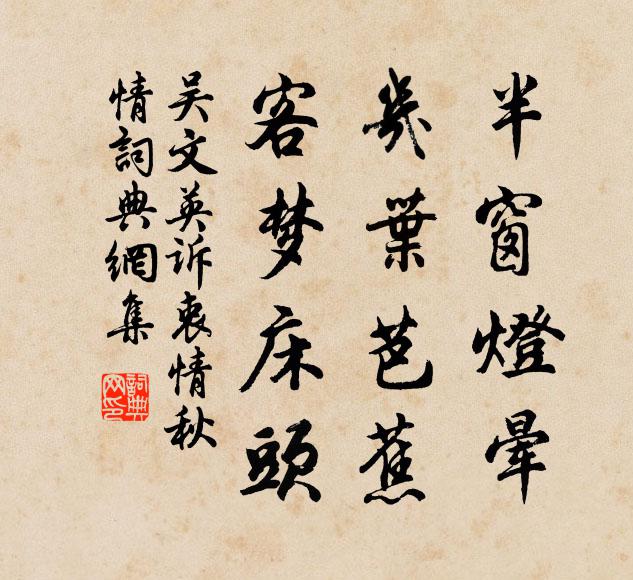 半窗燈暈
幾葉芭蕉
客梦床頭
吴文英诉衷情秋
情詞典網集
詞典网印